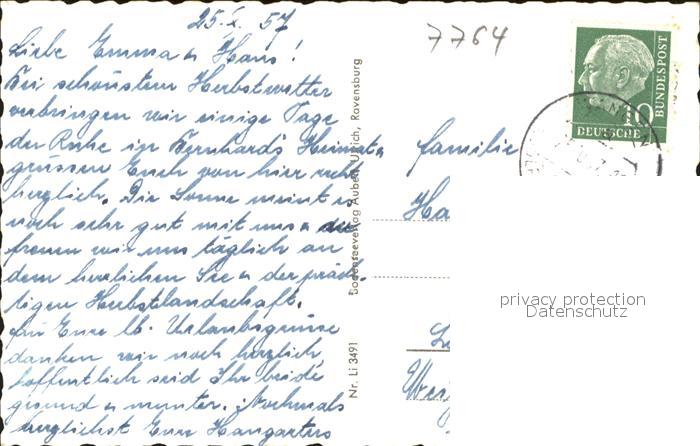 25. X. 57
Liebe Emma u Hans!
Bei schönstem Herbstwetter
verbringen wir einige Tage
der Ruhe in Bernhard's Heimat u
grüssen Euch von hier recht
herzlich. Die Sonne meint es
noch sehr gut mit uns u
freuen wir uns täglich an
dem herrlichen See u der präch-
tigen Herbstlandschaft.
Für Eure lb. Urlaubsgrüsse
danken wir noch herzlich,
hoffentlich seid Ihr beide
gesund u munter. Nochmals
herzlichst Eure Hangarters
Nr. Li 3491
Bodenseeverlag Aubert Ulrich, Ravensburg
7764
10
BUNDESPOST
DEUTSCHE
Familie
Ha
privacy protection
Datenschutz